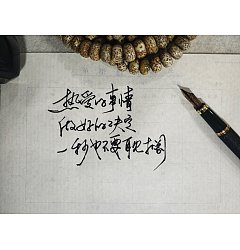 热爱的事情
做好的决定
一秒也不要耽搁